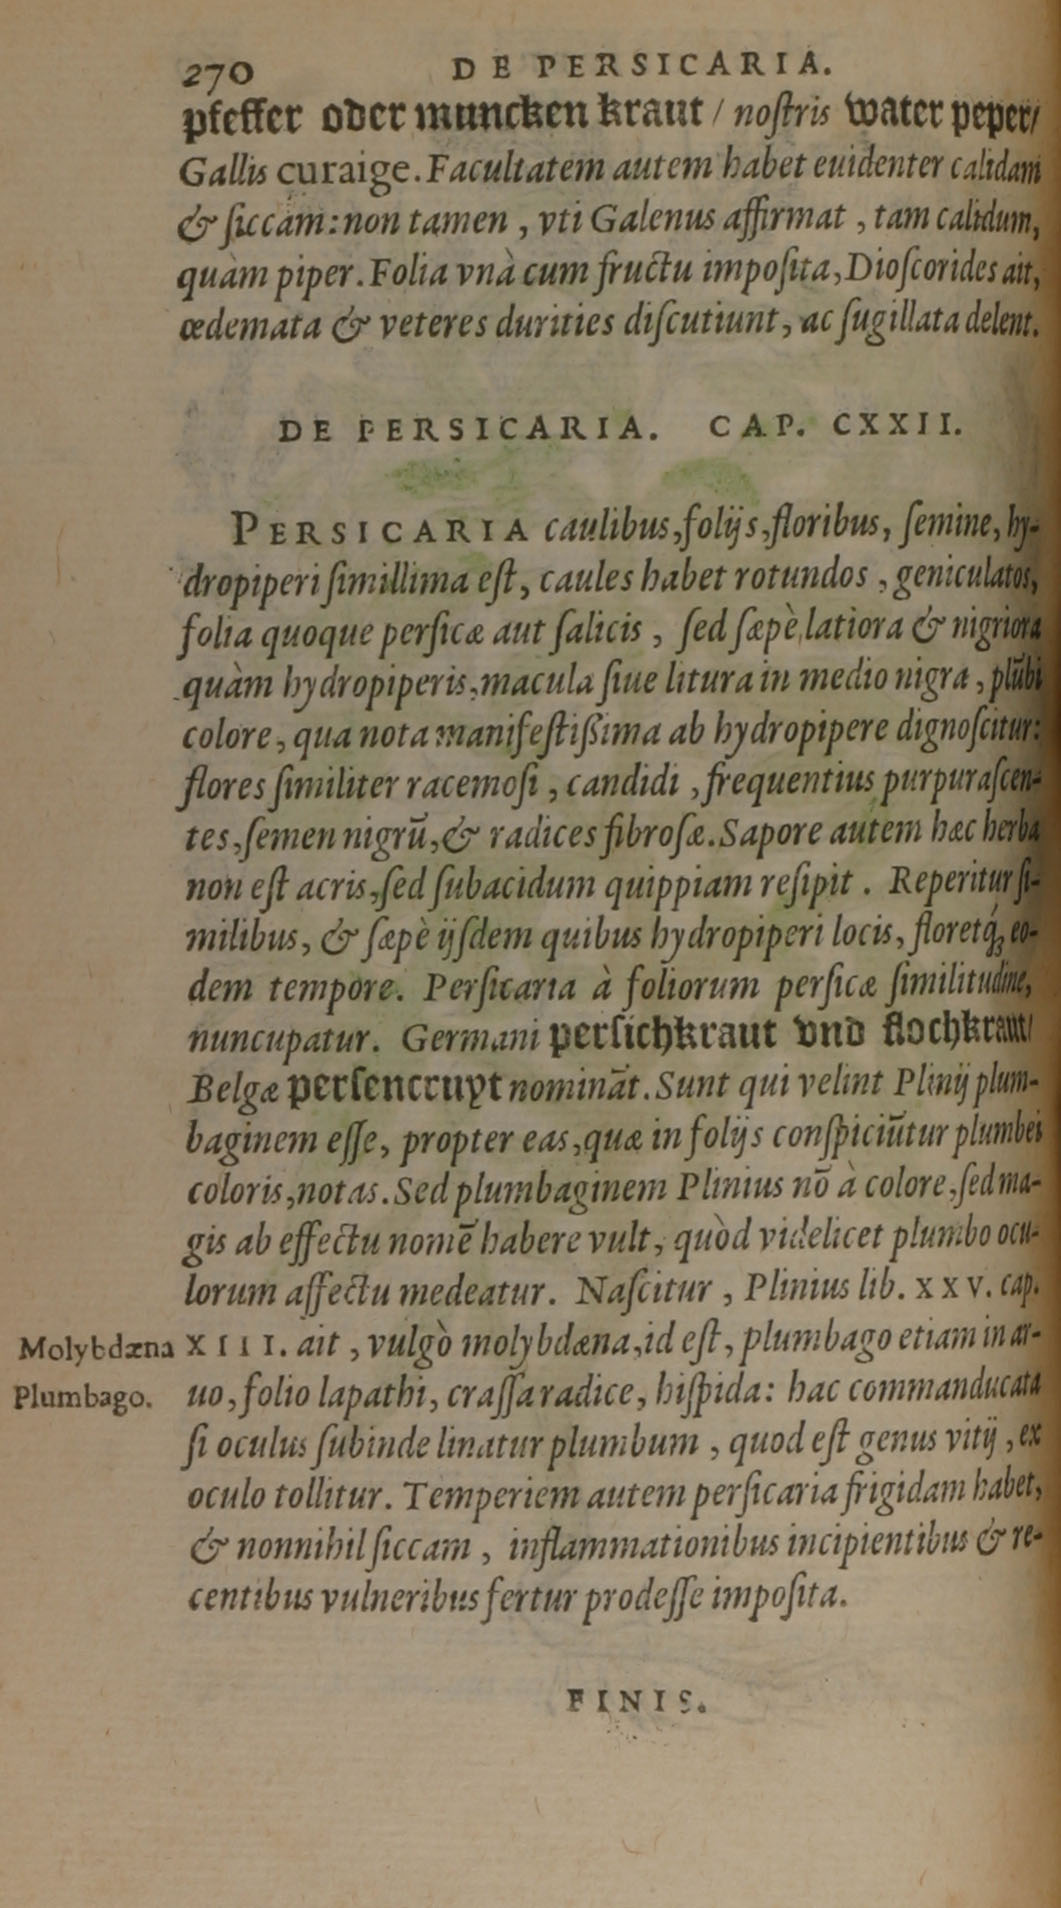 270 DE PERSICARIA.
pfeffer oder muncken kraut / noſtris water peper/
Gallis curaige. Facultatem autem habet euidenter calidam
& ſiccam: non tamen, vti Galenus affirmat, tam calidum,
quàm piper. Folia vnà cum fructu impoſita, Dioſcorides ait,
œdemata & veteres durities diſcutiunt, ac ſugillata delent.
DE PERSICARIA. CAP. CXXII.
PERSICARIA caulibus, folijs, floribus, ſemine, hy-
dropiperi ſimillima eſt, caules habet rotundos, geniculatos,
folia quoque perſicæ aut ſalicis, ſed ſæpè latiora & nigriora
quàm hydropiperis, macula ſiue litura in medio nigra, plūbi
colore, qua nota manifeſtißima ab hydropipere dignoſcitur:
flores ſimiliter racemoſi, candidi, frequentius purpuraſcen-
tes, ſemen nigrū, & radices fibroſæ. Sapore autem hæc herba
non eſt acris, ſed ſubacidum quippiam reſipit. Reperitur ſi-
milibus, & ſæpè ijſdem quibus hydropiperi locis, floretq́; eo-
dem tempore. Perſicaria à foliorum perſicæ ſimilitudine,
nuncupatur. Germani perſichkraut vnd flochkraut/
Belgæ perſencruyt nomināt. Sunt qui velint Plinij plum-
baginem eſſe, propter eas, quæ in folijs conſpiciūtur plumbei
coloris, notas. Sed plumbaginem Plinius nō à colore, ſed ma-
gis ab effectu nomē habere vult, quòd videlicet plumbo ocu-
lorum affectu medeatur. Naſcitur, Plinius lib. XXV. cap.
Molybdæna XIII. ait, vulgò molybdæna, id eſt, plumbago etiam in ar-
Plumbago. uo, folio lapathi, craſſa radice, hiſpida: hac commanducata
ſi oculus ſubinde linatur plumbum, quod eſt genus vitij, ex
oculo tollitur. Temperiem autem perſicaria frigidam habet,
& nonnihil ſiccam, inflammationibus incipientibus & re-
centibus vulneribus fertur prodeſſe impoſita.
FINIS.